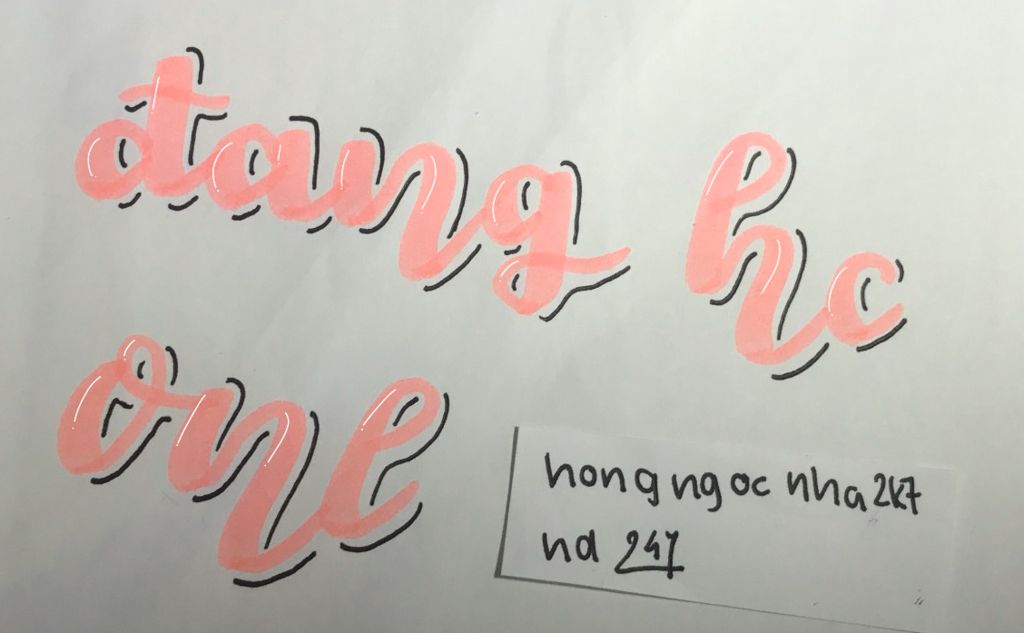 đang hc
onl
hongngoc nha2k7
nd 247